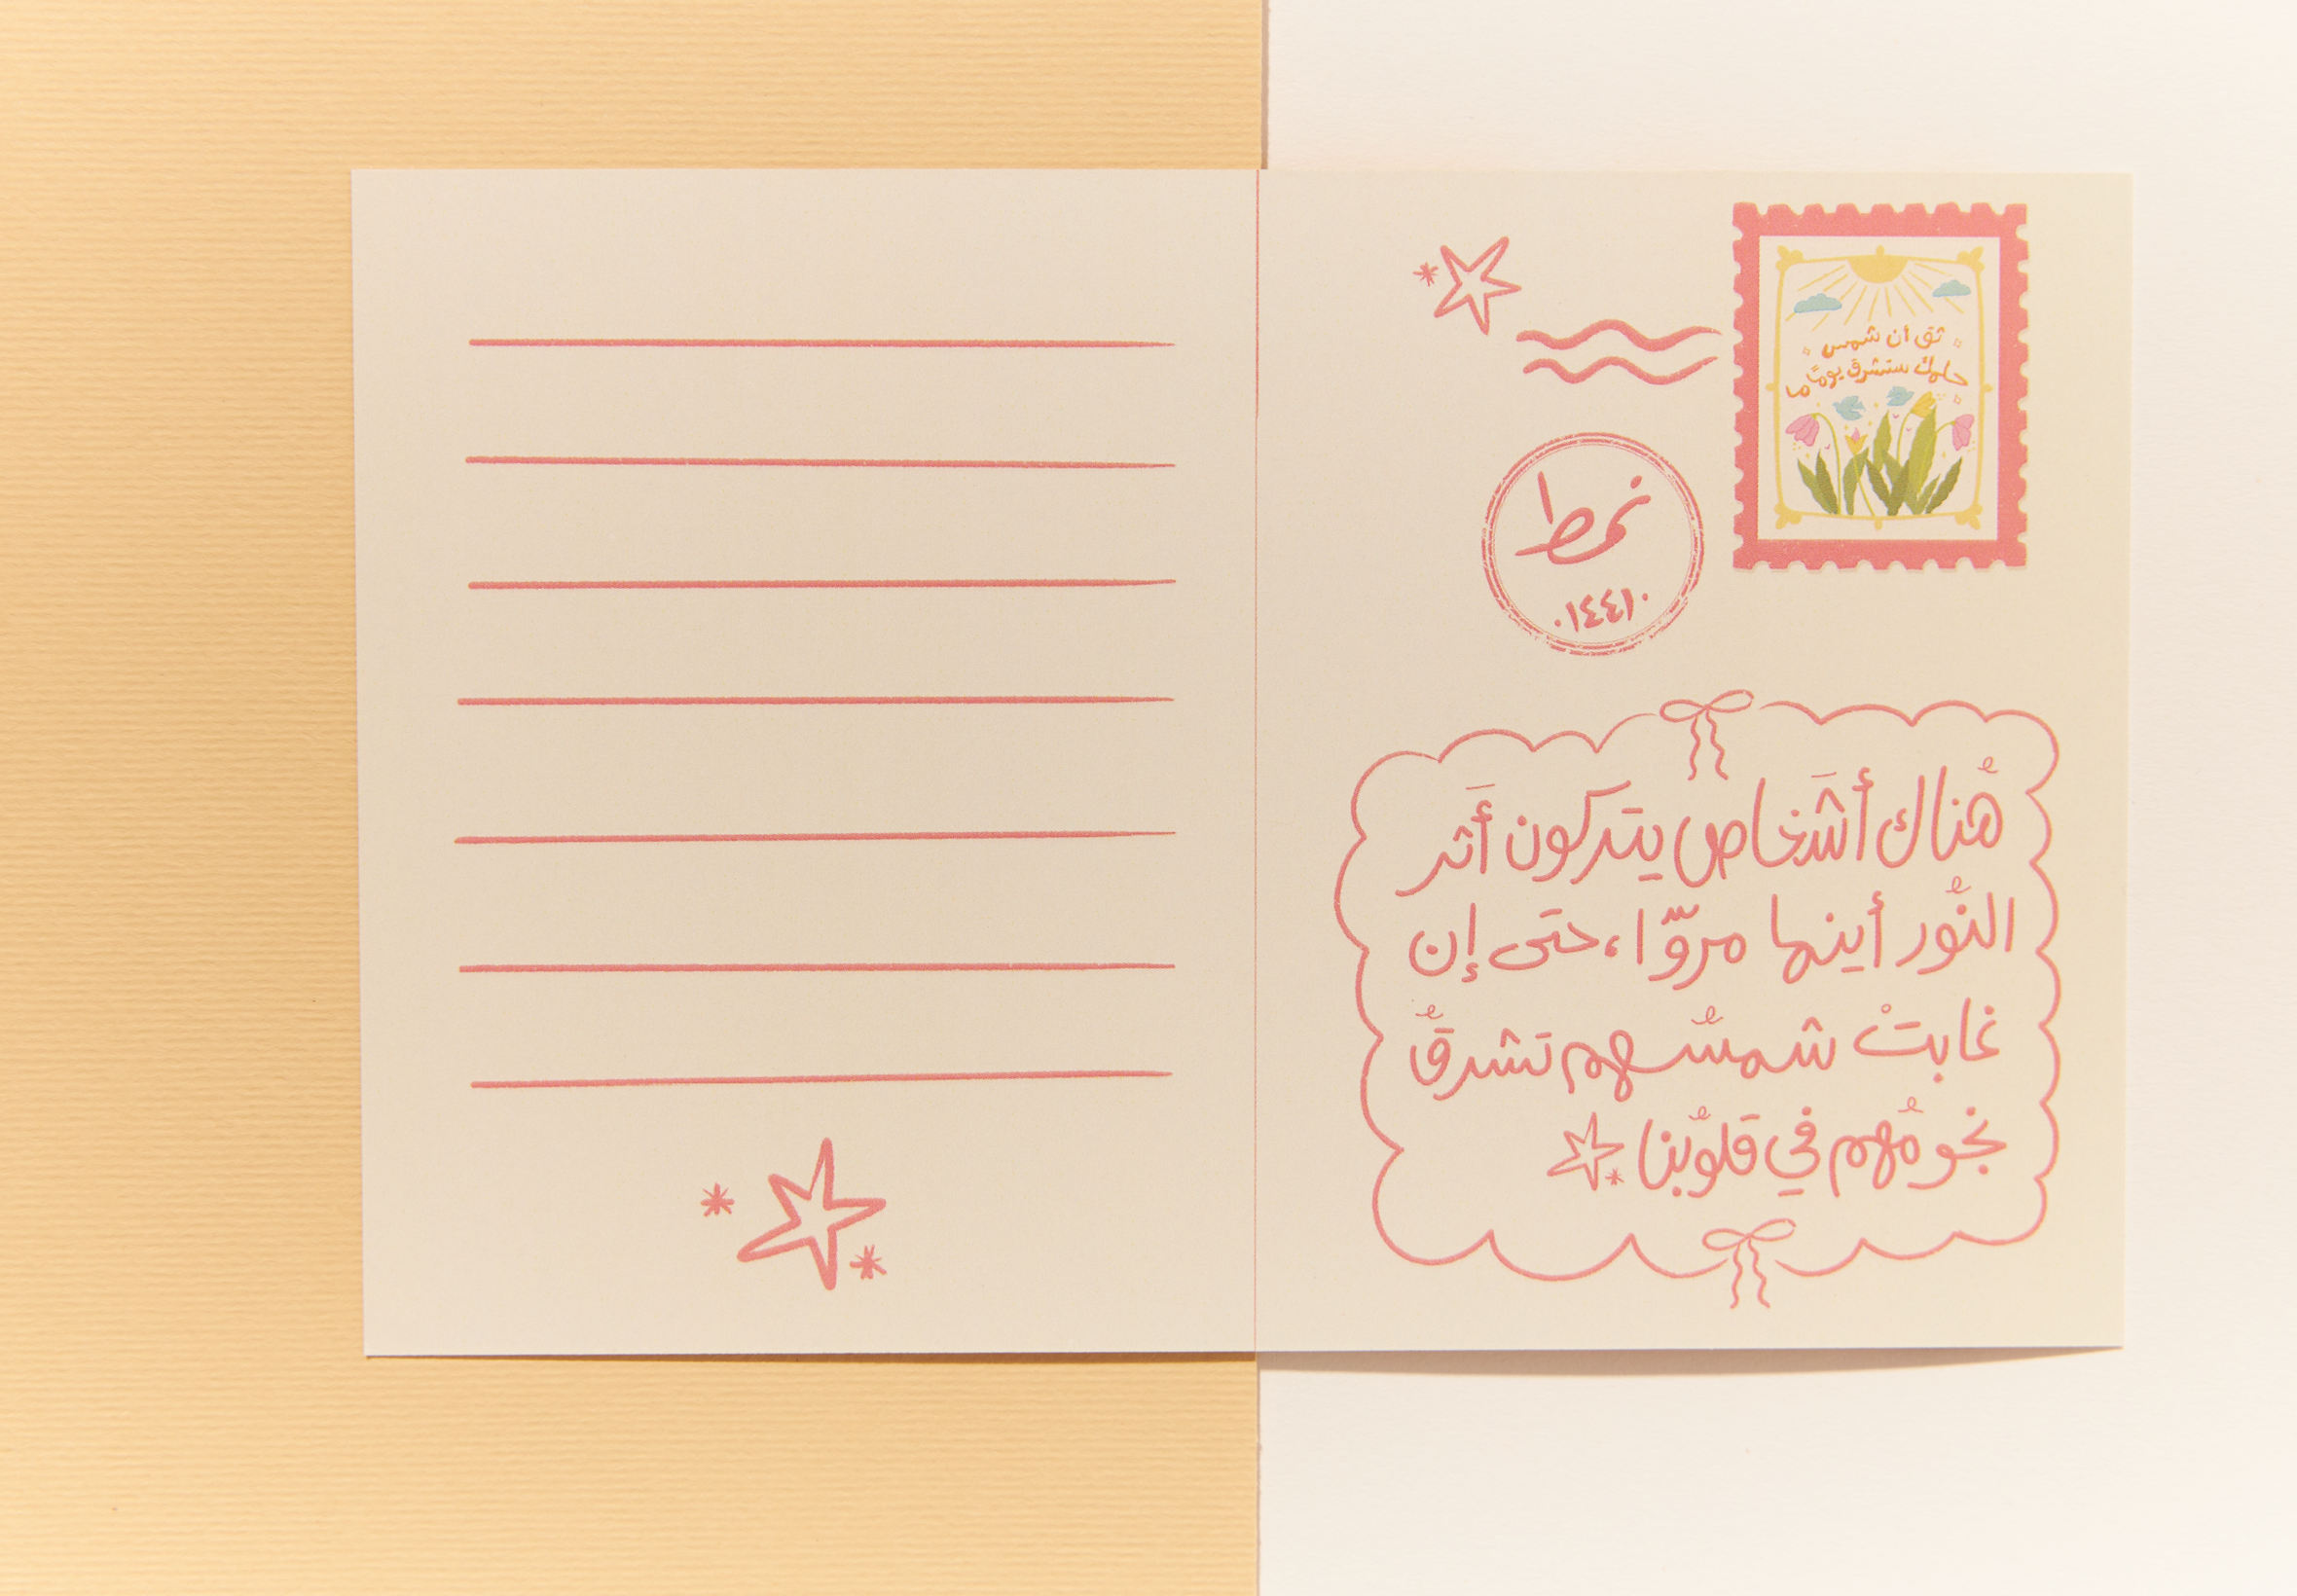 ثق أن شمس
حلمك ستشرق يومًا ما
نمط
٠١٤٤١٠
هُناك أَشَخاص يتركون أَثر
النُّور أينما مروّا، حتى إن
غابتْ شمسُهم تشرقُ
نجومُهم في قلوُبنا